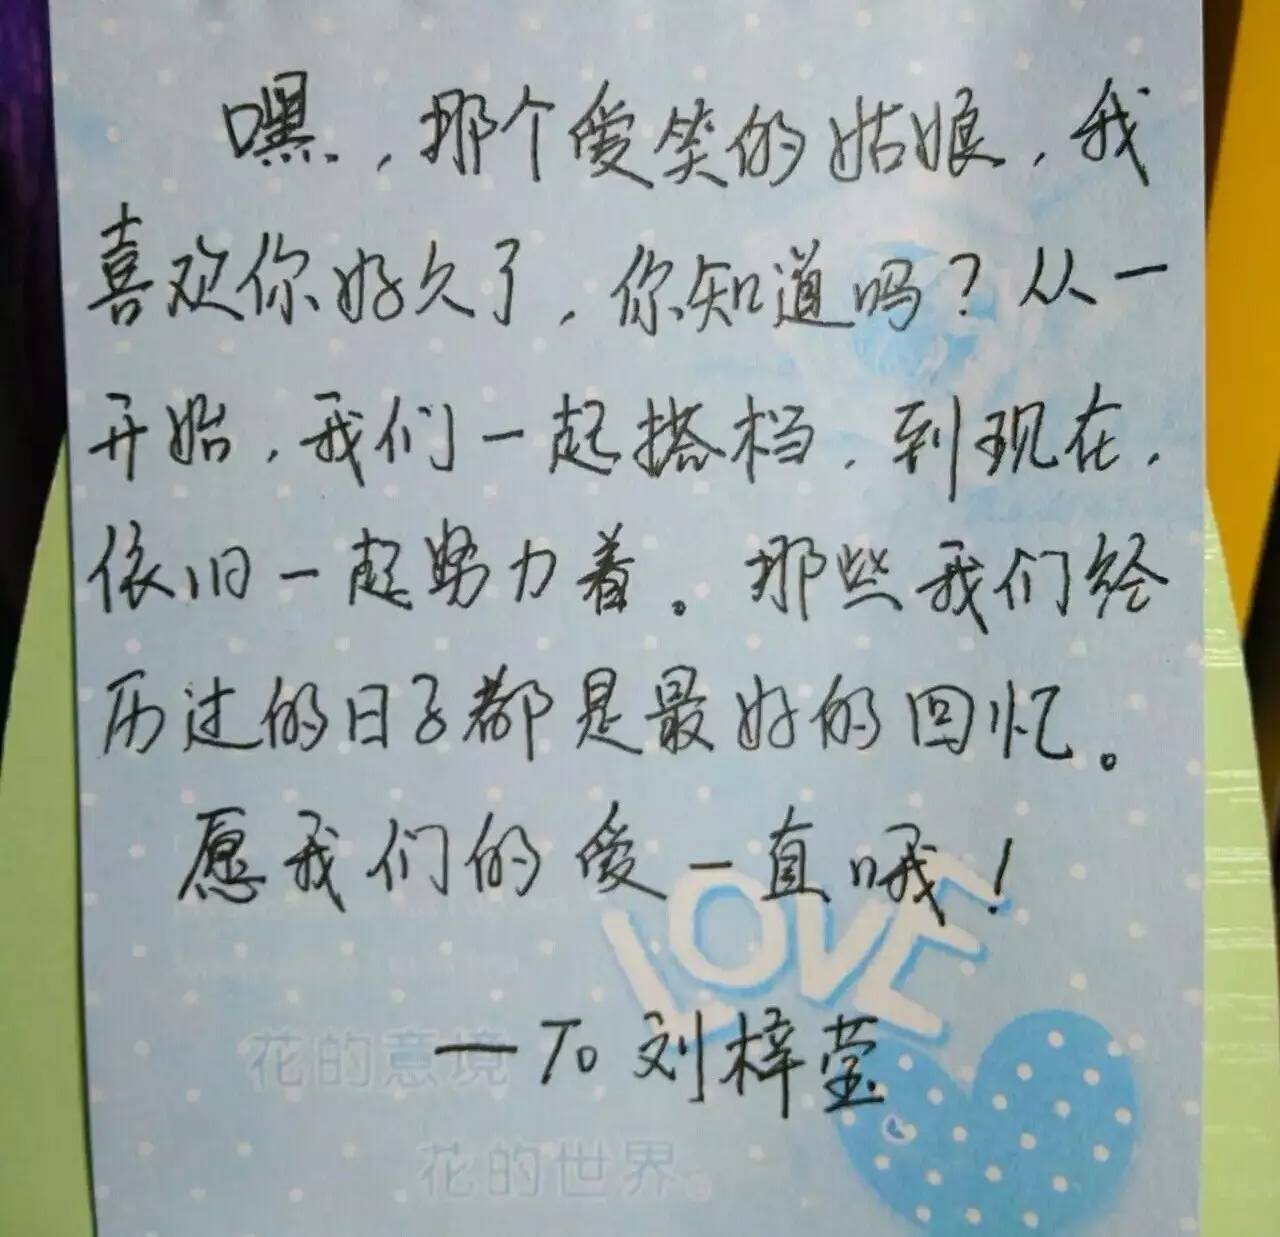 嘿，那个爱笑的姑娘，我
喜欢你好久了，你知道吗？从一
开始，我们一起搭档，到现在，
依旧一起努力着。那些我们经
历过的日子都是最好的回忆。
愿我们的爱一直哦！
LOVE
花的意境
—To 刘梓莹
花的世界。